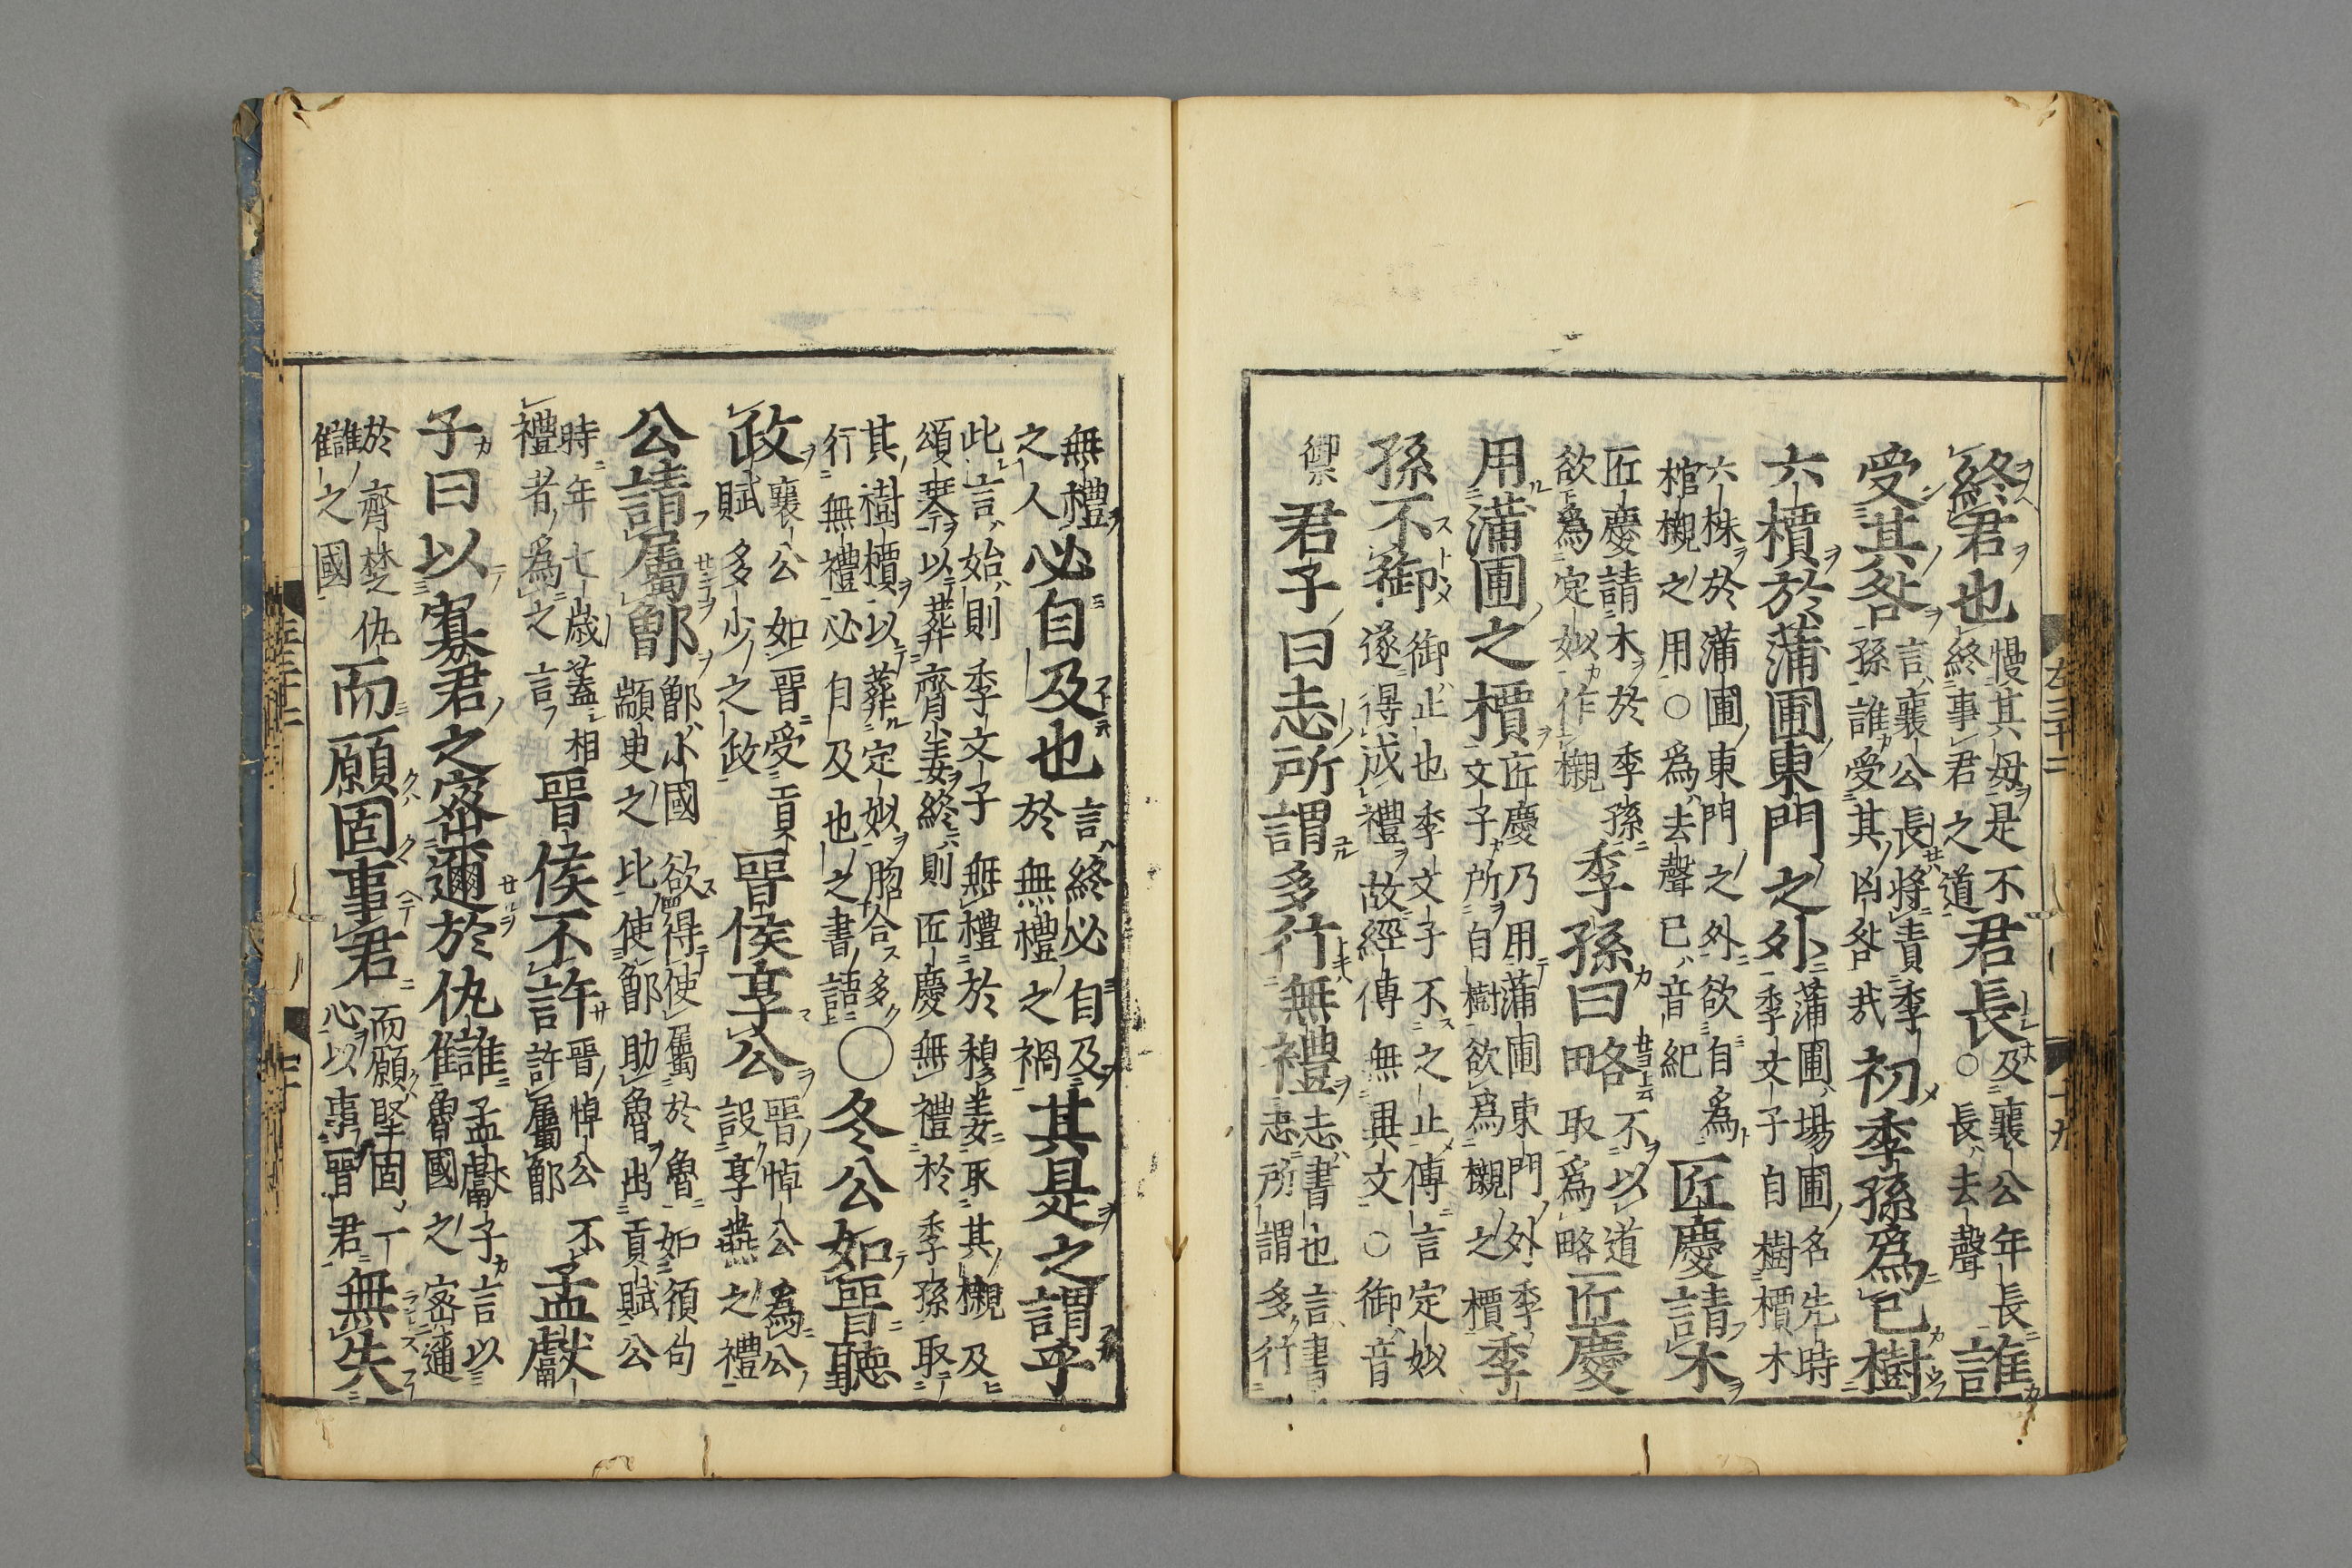 終君也慢其母是不終事君之道君長及襄公年長○長去聲誰
受其咎言襄公長將責季孫誰受其凶咎哉初季孫爲己樹
六檟於蒲圃東門之外蒲圃場圃名先時季文子自樹檟木
六株於蒲圃東門之外欲自爲棺櫬之用○爲去聲已音紀匠慶請木
匠慶請木於季孫欲爲定姒作櫬季孫曰略不以道取爲略匠慶
用蒲圃之檟匠慶乃用蒲圃東門外季文子所自樹欲爲櫬之檟季
孫不御御止也季文子不之止傳言定姒遂得成禮故經傳無異文○御音
禦君子曰志所謂多行無禮志書也言書志所謂多行
左三十二 十九
無禮之人必自及也言終必自及於無禮之禍其是之謂乎
此言始則季文子無禮於穆姜取其櫬及頌琴以葬齊姜終則匠慶無禮於季孫取
其樹檟以葬定姒脗合多行無禮必自及也之書語○冬公如晉聽
政襄公如晉受貢賦多少之政晉侯享公晉悼公爲公設享燕之禮
公請屬鄫鄫小國欲得使屬於魯如須句顓臾之比使鄫助魯出貢賦公
時年七歲蓋相禮者爲之言晉侯不許晉悼公不許屬鄫孟獻
子曰以寡君之密邇於仇讎孟獻子言以魯國之密邇
於齊楚仇讎之國而願固事君而願堅固丁心以事晉君無失